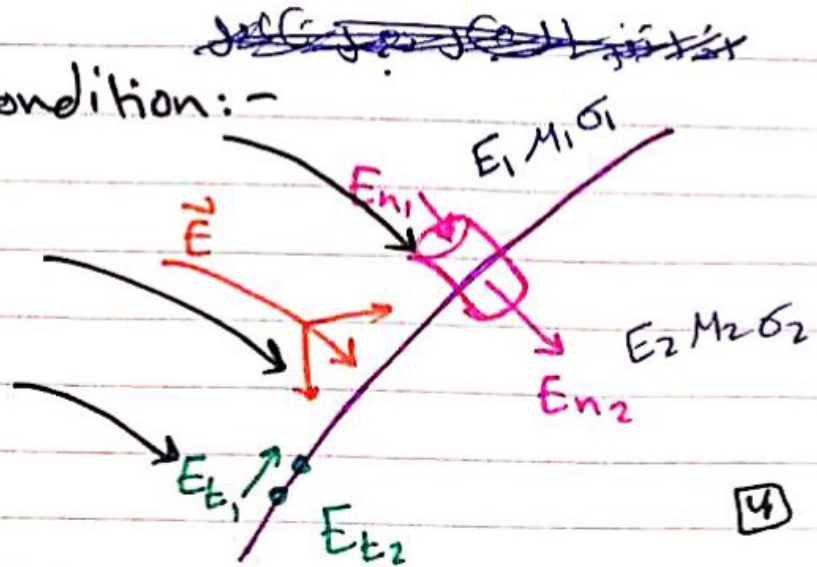 ondition:-
E₁ M₁ σ₁
En₁
E⃗
E₂ M₂ σ₂
En₂
Et₁
Et₂
4